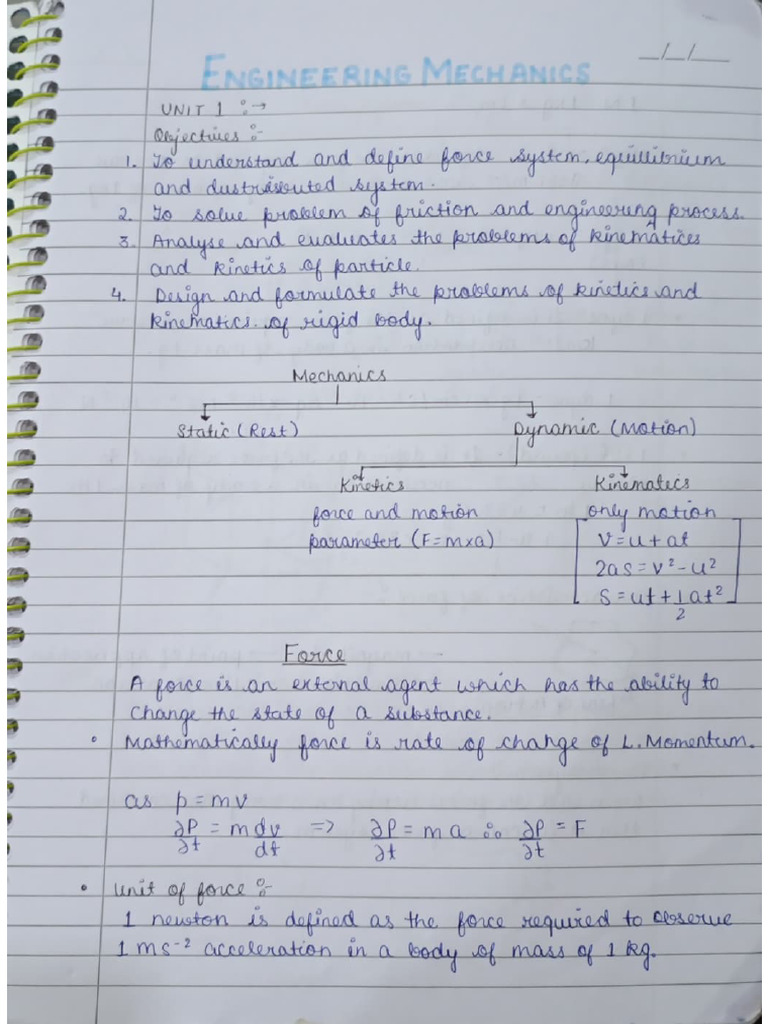 __/__/____
ENGINEERING MECHANICS
UNIT 1 :→
Objectives :-
1. To understand and define force system, equillibrium
and dustributed system.
2. To solve problem of friction and engineering process.
3. Analyse and evaluates the problems of kinematices
and kinetics of particle.
4. Design and formulate the problems of kinetics and
kinematics of rigid body.
Mechanics
Static (Rest) Dynamic (Motion)
Kinetics Kinematecs
force and motion only motion
parameter (F=m×a) v=u+at
2as=v²-u²
s=ut+1/2at²
Force
A force is an external agent which has the ability to
change the state of a substance.
• Mathematically force is rate of change of L. Momentum.
as p=mv
∂P/∂t = m dv/dt => ∂P/∂t = ma ∴ ∂P/∂t = F
• Unit of force :-
1 newton is defined as the force required to observe
1 ms⁻² acceleration in a body of mass of 1 kg.